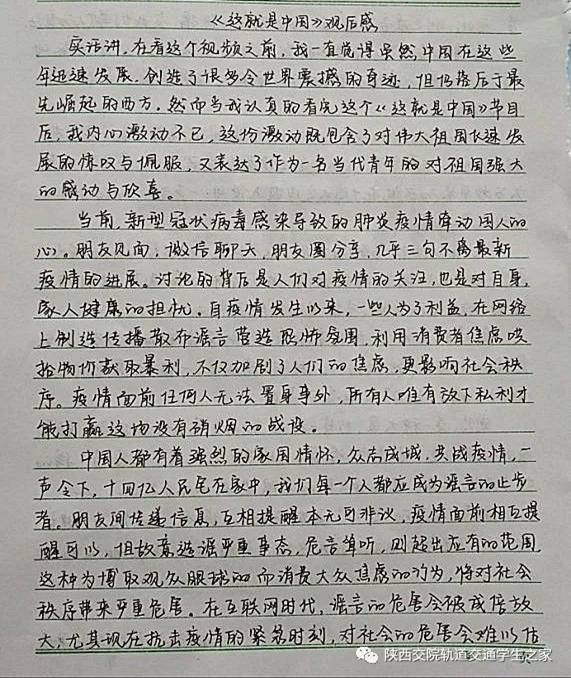 《这就是中国》观后感
实话讲,在看这个视频之前,我一直觉得虽然中国在这些
年迅速发展,创造了很多令世界震撼的奇迹,但仍落后于最
先崛起的西方。然而当我认真的看完这个《这就是中国》节目
后,我内心激动不已,这份激动既包含了对伟大祖国飞速发
展的惊叹与佩服,又表达了作为一名当代青年的对祖国强大
的感动与欣喜。
当前,新型冠状病毒感染导致的肺炎疫情牵动国人的
心。朋友见面,微信聊天,朋友圈分享,几乎三句不离最新
疫情的进展。讨论的背后是人们对疫情的关注,也是对自身、
家人健康的担忧。自疫情发生以来,一些人为了利益,在网络
上制造传播散布谣言营造恐怖氛围,利用消费者焦虑哄
抬物价获取暴利,不仅加剧了人们的焦虑,更影响社会秩
序。疫情面前任何人无法置身事外,所有人唯有放下私利才
能打赢这场没有硝烟的战役。
中国人都有着强烈的家国情怀,众志成城,共战疫情,一
声令下,十四亿人民宅在家中,我们每一个人都应成为谣言的止步
者。朋友间传递信息,互相提醒本无可非议,疫情面前相互提
醒可以,但故意造谣严重事态,危言耸听,则超出应有的范围,
这种为博取观众眼球的而消费大众焦虑的行为,将对社会
秩序带来严重危害。在互联网时代,谣言的危害会被成倍放
大,尤其现在抗击疫情的紧急时刻,对社会的危害会难以估
陕西交院轨道交通学生之家